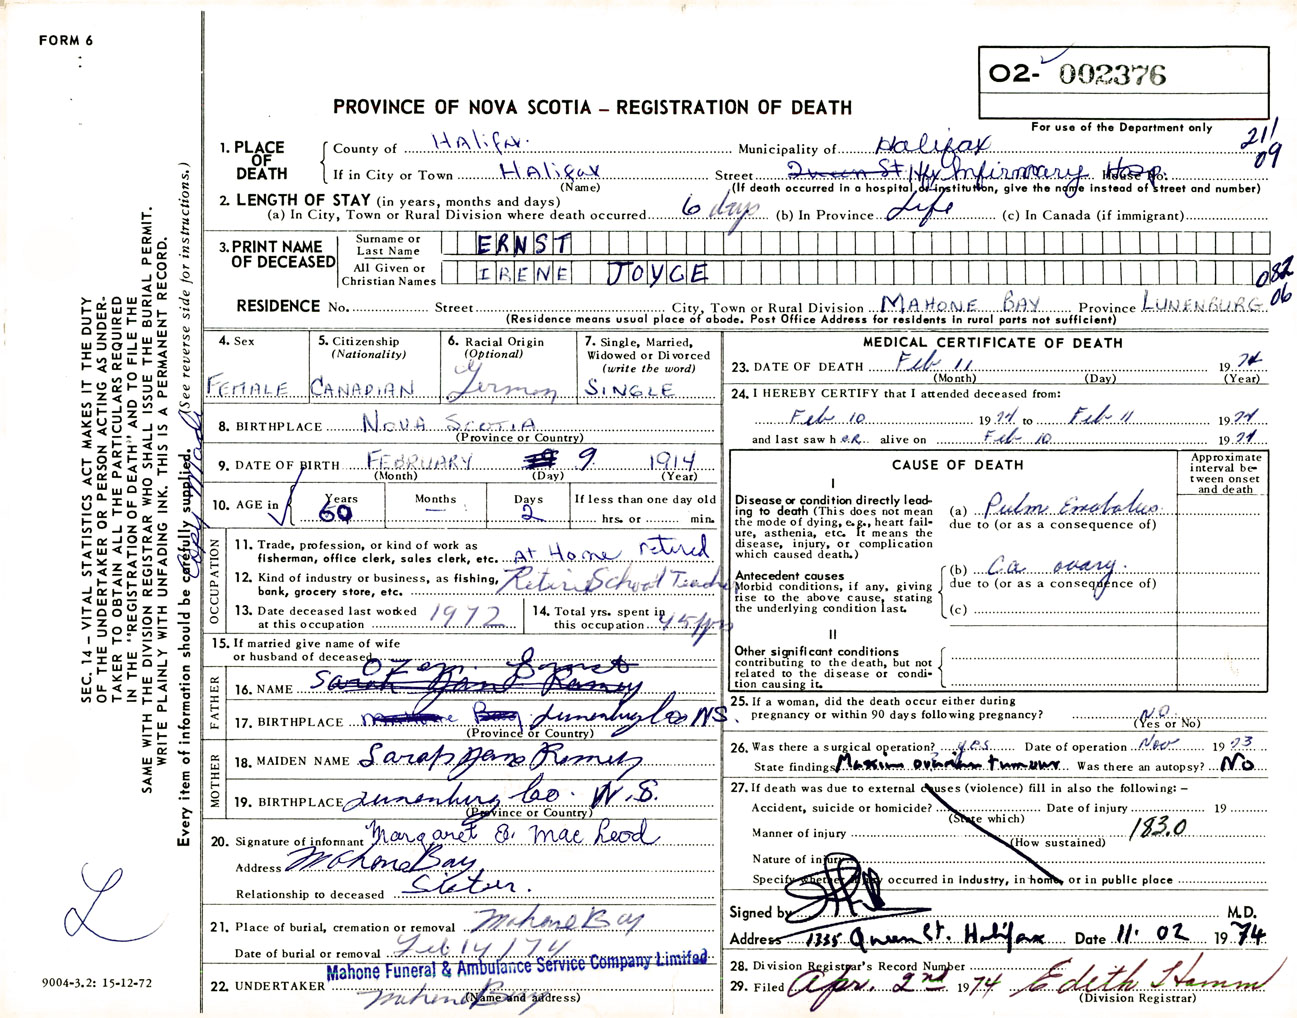 FORM 6
02- 002376
PROVINCE OF NOVA SCOTIA – REGISTRATION OF DEATH
For use of the Department only
211
09
1. PLACE OF DEATH
County of Halifax Municipality of Halifax
If in City or Town Halifax Street Queen St Hfx Infirmary Hosp House No.
(Name) (If death occurred in a hospital or institution, give the name instead of street and number)
2. LENGTH OF STAY (in years, months and days)
(a) In City, Town or Rural Division where death occurred 6 days (b) In Province Life (c) In Canada (if immigrant)
3. PRINT NAME OF DECEASED
Surname or Last Name ERNST
All Given or Christian Names IRENE JOYCE
082
06
RESIDENCE No. Street City, Town or Rural Division MAHONE BAY Province LUNENBURG
(Residence means usual place of abode. Post Office Address for residents in rural parts not sufficient)
4. Sex
FEMALE
5. Citizenship
(Nationality)
CANADIAN
6. Racial Origin
(Optional)
German
7. Single, Married,
Widowed or Divorced
(write the word)
SINGLE
8. BIRTHPLACE NOVA SCOTIA
(Province or Country)
9. DATE OF BIRTH FEBRUARY 9 1914
(Month) (Day) (Year)
10. AGE in
Years 60
Months —
Days 2
If less than one day old
hrs. or min.
OCCUPATION
11. Trade, profession, or kind of work as
fisherman, office clerk, sales clerk, etc. At Home retired
12. Kind of industry or business, as fishing,
bank, grocery store, etc. Retire School Teacher
13. Date deceased last worked
at this occupation 1972
14. Total yrs. spent in
this occupation 45 yrs
15. If married give name of wife
or husband of deceased
FATHER
16. NAME Sarah Jane Ramey
17. BIRTHPLACE Mahone Bay Lunenburg Co NS.
(Province or Country)
MOTHER
18. MAIDEN NAME Sarah Jane Ramey
19. BIRTHPLACE Lunenburg Co. N.S.
(Province or Country)
20. Signature of informant Margaret E. MacLeod
Address Mahone Bay
Relationship to deceased Sister.
21. Place of burial, cremation or removal Mahone Bay
Date of burial or removal Feb 14/74
Mahone Funeral & Ambulance Service Company Limited
22. UNDERTAKER Mahone Bay
(Name and address)
MEDICAL CERTIFICATE OF DEATH
23. DATE OF DEATH Feb 11 1974
(Month) (Day) (Year)
24. I HEREBY CERTIFY that I attended deceased from:
Feb 10 1974 to Feb 11 1974
and last saw her alive on Feb 10 1974
CAUSE OF DEATH
Approximate
interval be-
tween onset
and death
I
Disease or condition directly lead-
ing to death (This does not mean
the mode of dying, e.g., heart fail-
ure, asthenia, etc. It means the
disease, injury, or complication
which caused death.)
(a) Pulm Embolus
due to (or as a consequence of)
Antecedent causes
Morbid conditions, if any, giving
rise to the above cause, stating
the underlying condition last.
(b) Ca ovary.
due to (or as a consequence of)
(c)
II
Other significant conditions
contributing to the death, but not
related to the disease or condi-
tion causing it.
25. If a woman, did the death occur either during
pregnancy or within 90 days following pregnancy? NO
(Yes or No)
26. Was there a surgical operation? yes Date of operation Nov 1973
State findings ovarian tumour Was there an autopsy? No
27. If death was due to external causes (violence) fill in also the following: –
Accident, suicide or homicide? Date of injury 19
(State which)
Manner of injury 183.0
(How sustained)
Nature of injury
Specify whether injury occurred in industry, in home, or in public place
Signed by M.D.
Address 1335 Queen St. Halifax Date 11. 02 1974
28. Division Registrar's Record Number
29. Filed Apr. 2nd 1974 Edith Hamm
(Division Registrar)
SEC. 14 – VITAL STATISTICS ACT MAKES IT THE DUTY
OF THE UNDERTAKER OR PERSON ACTING AS UNDER-
TAKER TO OBTAIN ALL THE PARTICULARS REQUIRED
IN THE "REGISTRATION OF DEATH" AND TO FILE THE
SAME WITH THE DIVISION REGISTRAR WHO SHALL ISSUE THE BURIAL PERMIT.
WRITE PLAINLY WITH UNFADING INK. THIS IS A PERMANENT RECORD.
Every item of information should be carefully supplied. (See reverse side for instructions.)
Copy Made
L
9004-3.2: 15-12-72